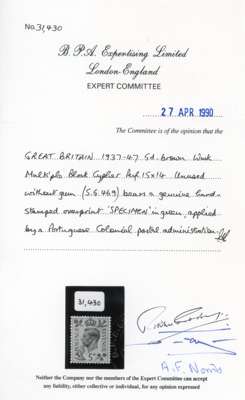 No. 31,430
B. P. A. Expertising Limited
London-England
EXPERT COMMITTEE
27 APR 1990
The Committee is of the opinion that the
GREAT BRITAIN 1937-47 5d. brown Wmk
Multiple Block Cypher Perf. 15x14 Unused
without gum (S.G.469) bears a genuine hand-
stamped overprint 'SPECIMEN' in green, applied
by a Portuguese Colonial postal administration.
31,430
A. F. Norris
Neither the Company nor the members of the Expert Committee can accept
any liability, either collective or individual, for any opinion expressed